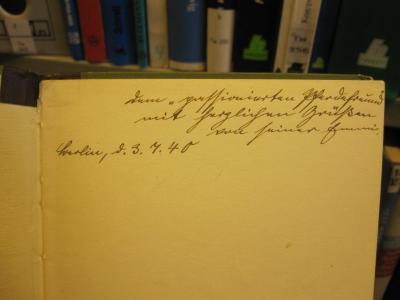 dem „passionierten Pferdefreund“
mit herzlichen Grüßen
von seiner Emmi.
Berlin, d. 3. 7. 40